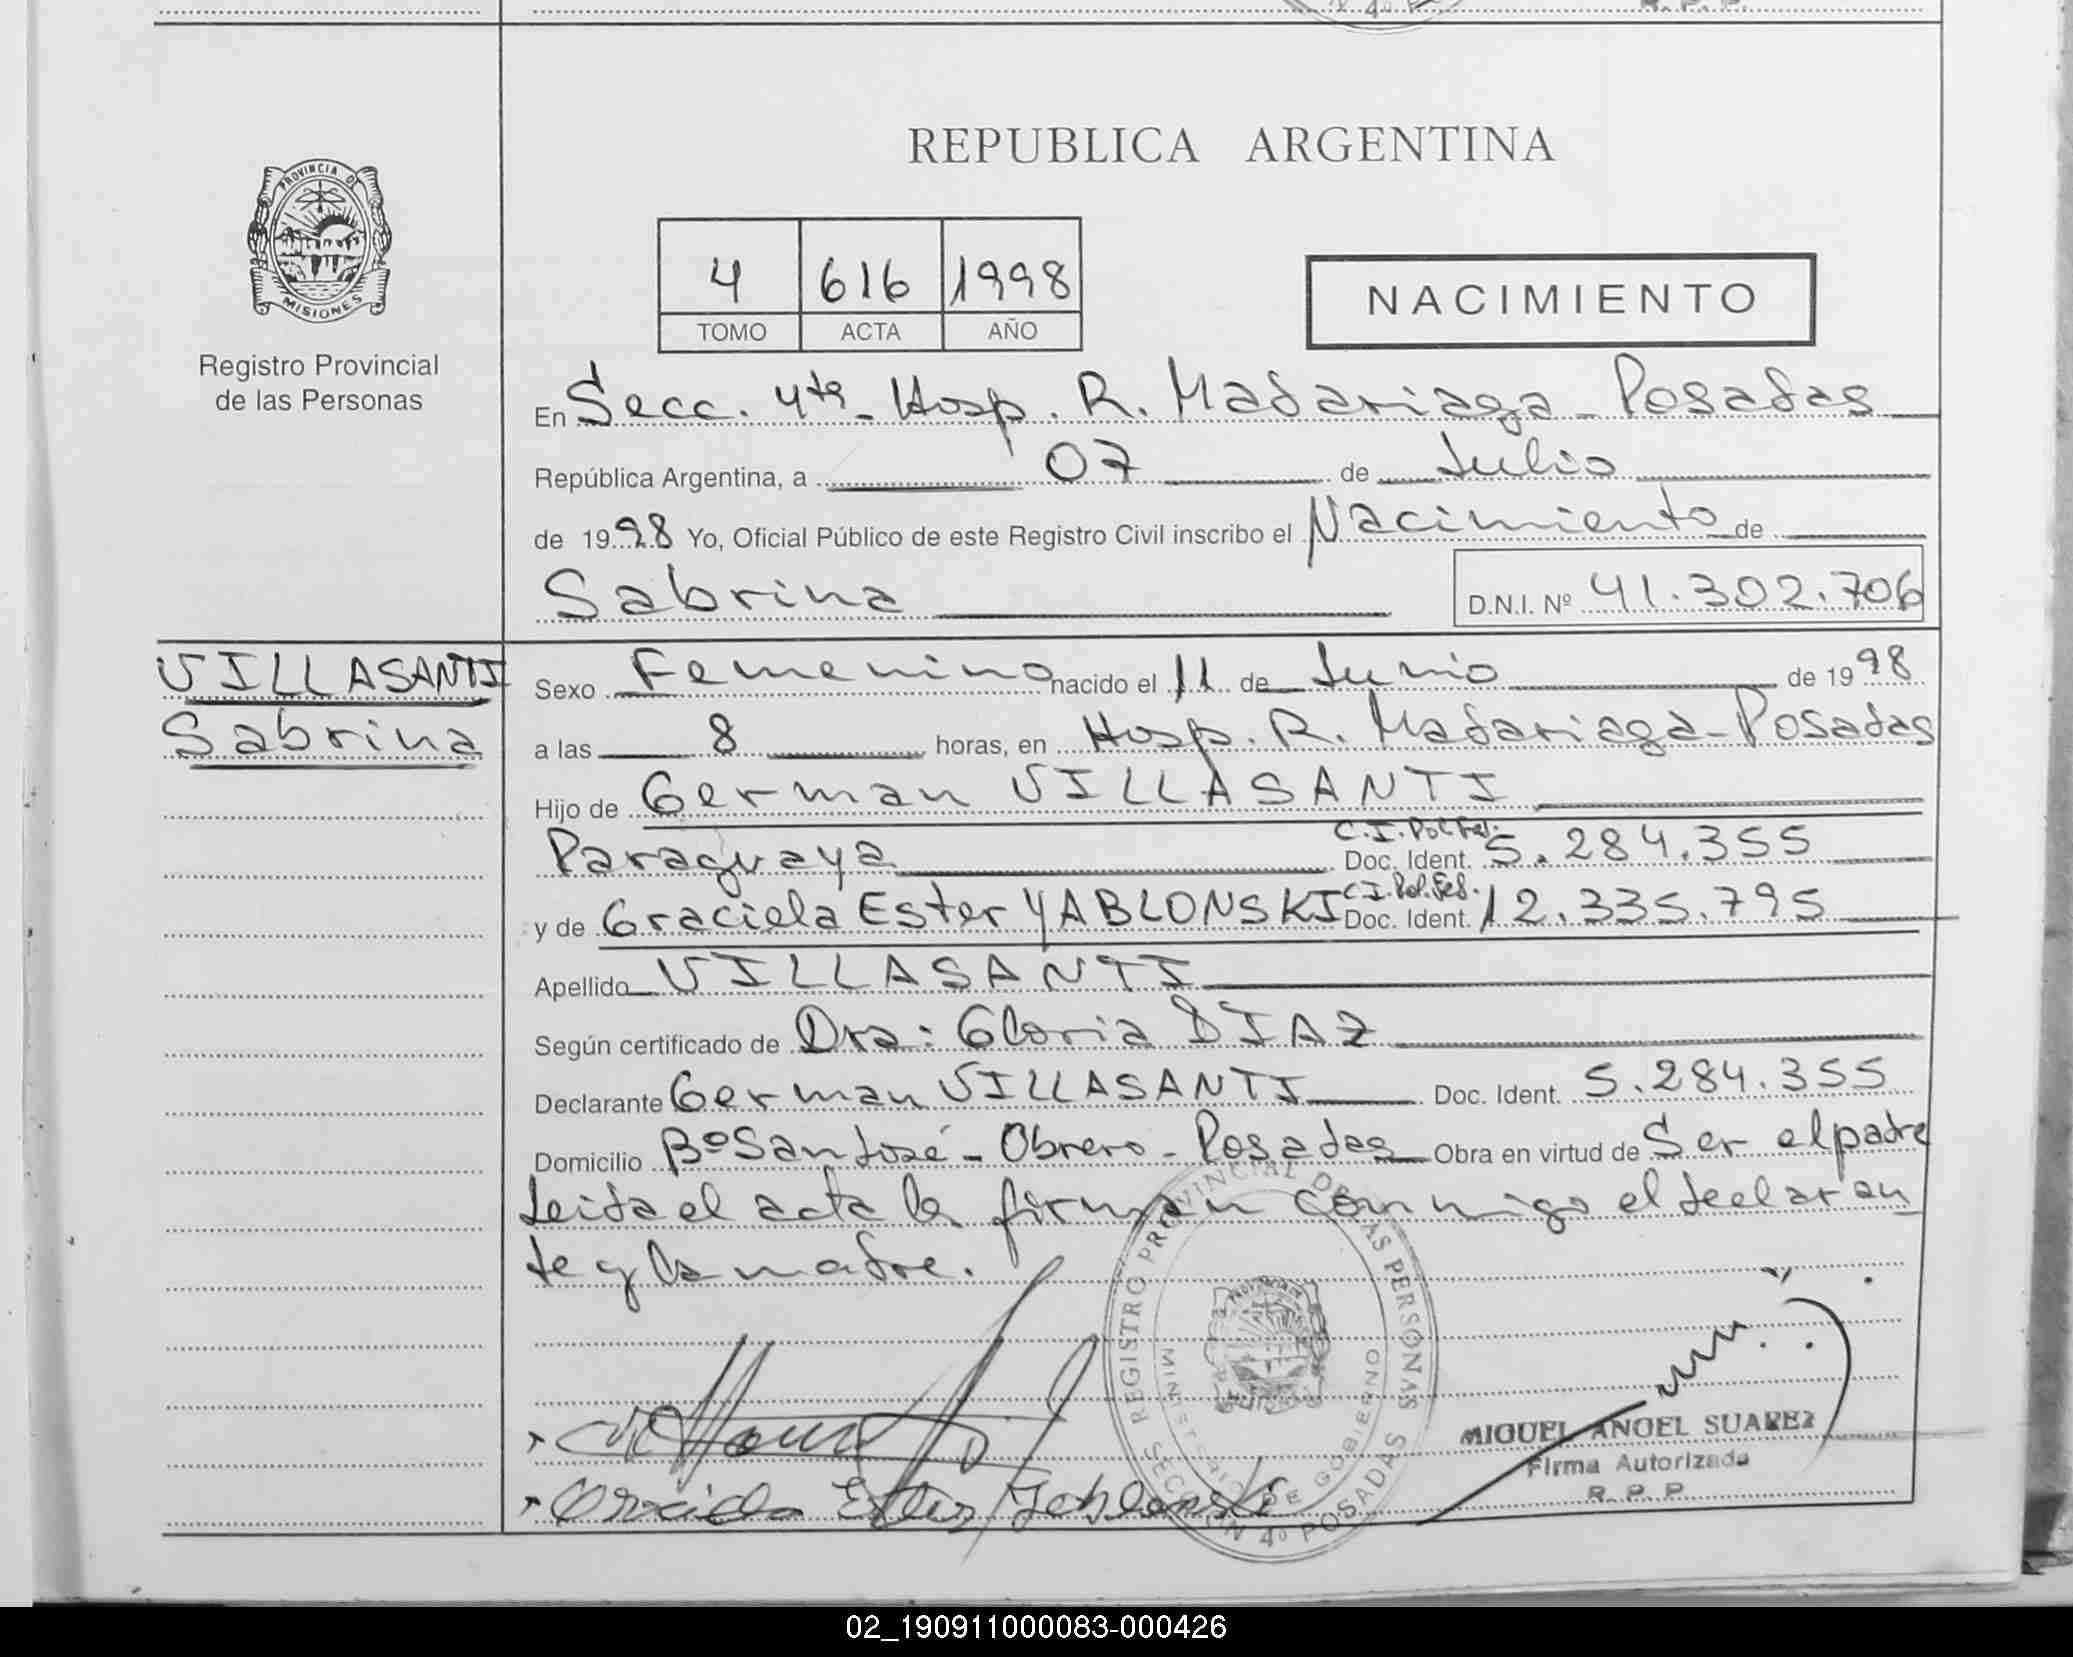 REPUBLICA ARGENTINA
PROVINCIA DE
MISIONES
Registro Provincial
de las Personas
4 616 1998
TOMO ACTA AÑO
NACIMIENTO
En Secc. 4ta - Hosp. R. Madariaga - Posadas
República Argentina, a 07 de Julio
de 1998 Yo, Oficial Público de este Registro Civil inscribo el Nacimiento de
Sabrina D.N.I. Nº 41.302.706
VILLASANTI
Sabrina
Sexo Femenino nacido el 11 de Junio de 1998
a las 8 horas, en Hosp. R. Madariaga - Posadas
Hijo de German VILLASANTI
Paraguaya C.I. Pol. Fed. Doc. Ident. 5.284.355
y de Graciela Ester YABLONSKI C.I. Pol. Fed. Doc. Ident. 12.335.795
Apellido VILLASANTI
Según certificado de Dra: Gloria DIAZ
Declarante German VILLASANTI Doc. Ident. 5.284.355
Domicilio Bº San José - Obrero - Posadas Obra en virtud de Ser el padre
Leida el acta la firman conmigo el declaran
te y la madre.
REGISTRO PROVINCIAL DE LAS PERSONAS
MINISTERIO DE GOBIERNO
SECCION 4º POSADAS
MIGUEL ANGEL SUAREZ
Firma Autorizada
R. P. P.
Graciela Ester Yablonski
02_190911000083-000426